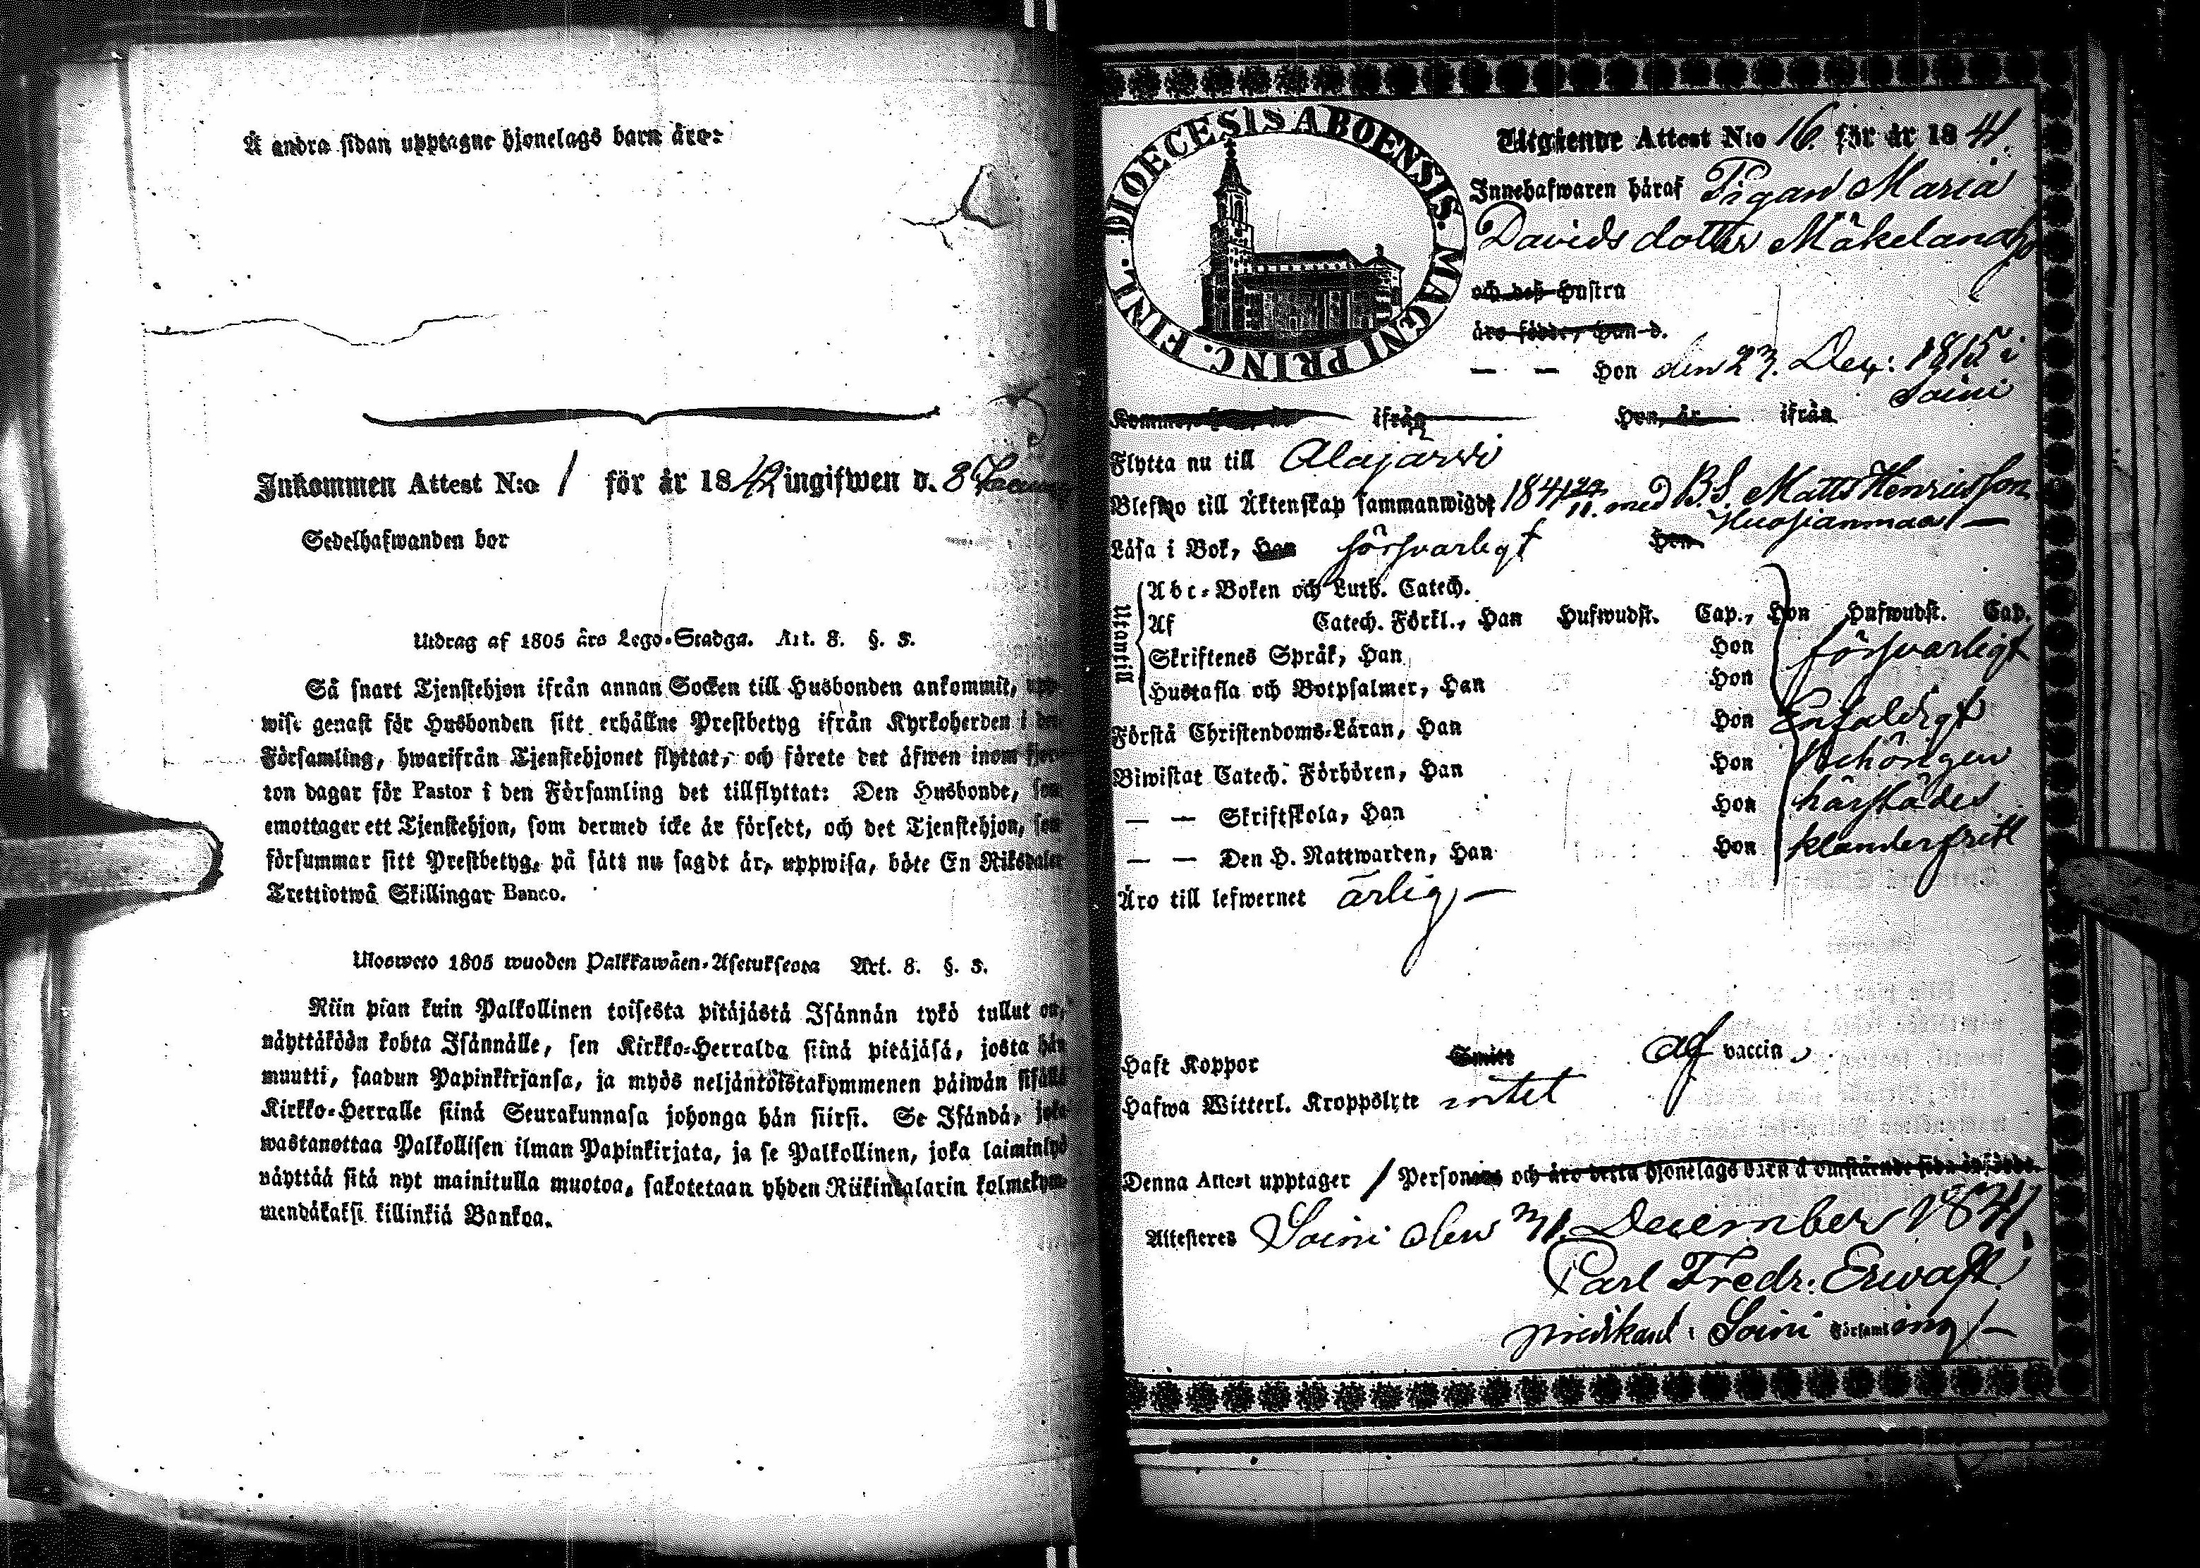 Å andra sidan upptagne hjonelags barn äro:
Inkommen Attest N:o 1 för år 1842 ingifwen d. 8
Sedelhafwanden bor
Utdrag af 1805 års Lego-Stadga. Art. 8. §. 3.
Så snart Tjenstehjon ifrån annan Socken till Husbonden ankommit, upp-
wise genast för Husbonden sitt erhållne Prestbetyg ifrån Kyrkoherden i den
Församling, hwarifrån Tjenstehjonet flyttat, och förete det äfwen inom fjor-
ton dagar för Pastor i den Församling det tillflyttat: Den Husbonde, som
emottager ett Tjenstehjon, som dermed icke är försedt, och det Tjenstehjon, som
försummar sitt Prestbetyg, på sätt nu sagdt är, uppwisa, böte En Riksdaler
Trettiotwå Skillingar Banco.
Ulosweto 1805 wuoden Palkkawäen-Asetuksesta Art. 8. §. 3.
Niin pian kuin Palkollinen toisesta pitäjästä Isännän tykö tullut on,
näyttäköön kohta Isännälle, sen Kirkko-Herralda siinä pitäjäsä, josta hän
muutti, saadun Papinkirjansa, ja myös neljäntoistakymmenen päiwän sisällä
Kirkko-Herralle siinä Seurakunnasa johonga hän siirsi. Se Isändä, joka
wastanottaa Palkollisen ilman Papinkirjata, ja se Palkollinen, joka laiminlyö
näyttää sitä nyt mainitulla muotoa, sakotetaan yhden Riikindalarin kolmekym-
mendäkaksi killinkiä Bankoa.
DIOECESIS ABOENSIS. MAGNI PRINC. FINL.
Utgående Attest N:o 16. för år 1841.
Innehafwaren häraf Pigan Maria
Davids dotter Mäkelanaho
och deß Hustru
äro födde, Han d.
— — Hon den 23. Dec: 1815 i
Soini
ifrån Hon, är ifrån
Flytta nu till Alajärvi
Blefwo till Äktenskap sammanwigde 1841 22/11. med B.S. Matts Henriksson
Huosianmaa —
Läsa i Bok, Han försvarligt Hon
Utantill
Abc-Boken och Luth. Catech.
Af Catech. Förkl., Han Hufwudst. Cap., Hon Hufwudst. Cap.
Skriftenes Språk, Han Hon försvarligt
Hustafla och Botpsalmer, Han Hon
Förstå Christendoms-Läran, Han Hon Enfaldigt
Biwistat Catech. Förhören, Han Hon behörigen
— — Skriftskola, Han Hon härstädes
— — Den H. Nattwarden, Han Hon klanderfritt
Äro till lefwernet ärlig —
Haft Koppor Smitt af vaccin
Hafwa Witterl. Kroppslyte intet
Denna Attest upptager 1 Personer och äro detta hjonelags barn å omstående sida införde.
Attesteres Soini den 31. December 1841.
Carl Fredr: Erwast.
predikant i Soini Församling —